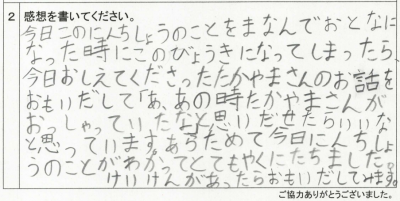 2 感想を書いてください。
今日このにんちしょうのことをまなんでおとなに
なった時にこのびょうきになってしまったら、
今日おしえてくださったたかやまさんのお話を
おもいだして「あ、あの時たかやまさんが
おっしゃっていたなと思いだせたらいいな
と思っています。あらためて今日にんちしょ
うのことがわかってとてもやくにたちました。
けいけんがあったらおもいだしてみます。
ご協力ありがとうございました。